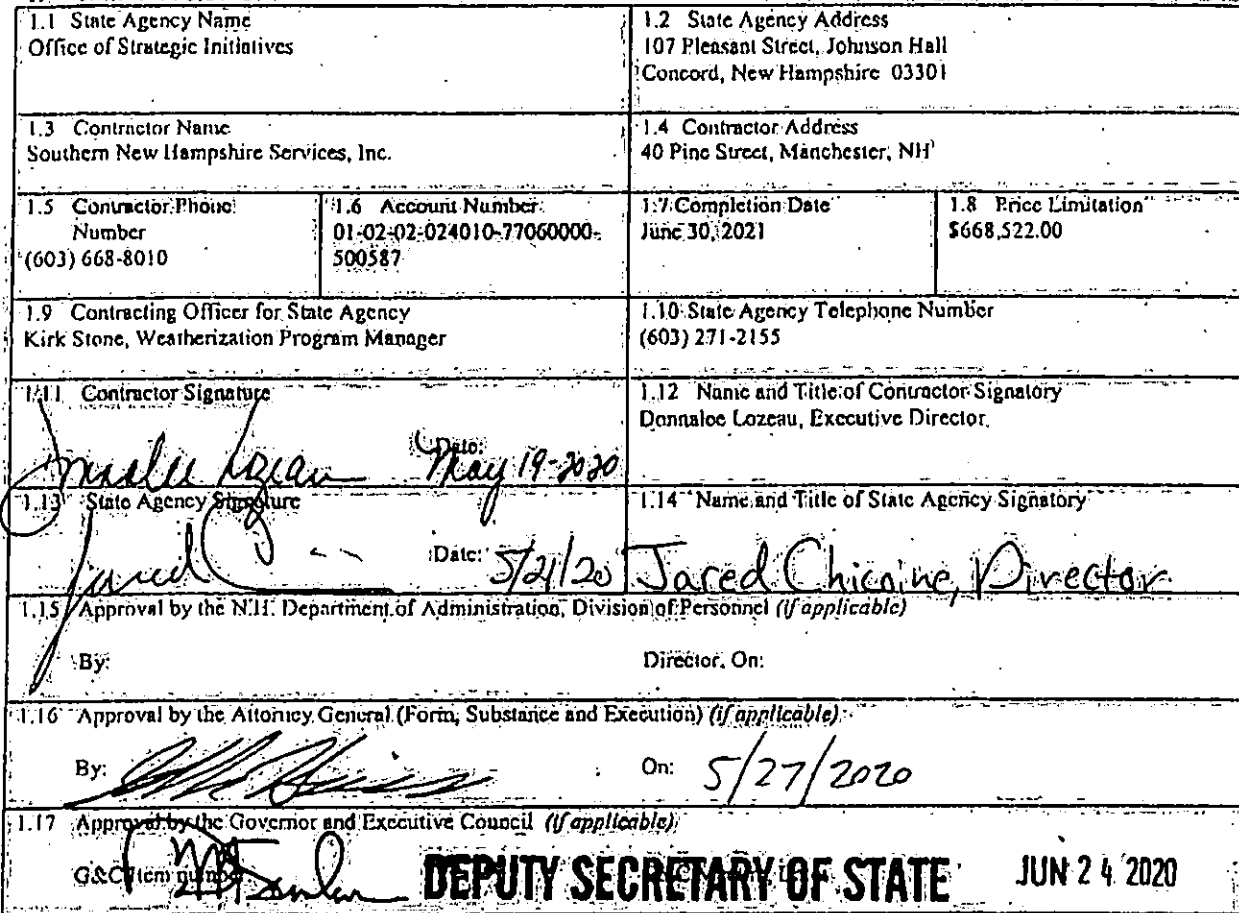 1.1 State Agency Name
Office of Strategic Initiatives
1.2 State Agency Address
107 Pleasant Street, Johnson Hall
Concord, New Hampshire 03301
1.3 Contractor Name
Southern New Hampshire Services, Inc.
1.4 Contractor Address
40 Pine Street, Manchester, NH
1.5 Contractor Phone
Number
(603) 668-8010
1.6 Account Number
01-02-02-024010-77060000-
500587
1.7 Completion Date
June 30, 2021
1.8 Price Limitation
$668,522.00
1.9 Contracting Officer for State Agency
Kirk Stone, Weatherization Program Manager
1.10 State Agency Telephone Number
(603) 271-2155
1.11 Contractor Signature
Date: May 19-2020
1.12 Name and Title of Contractor Signatory
Donnalee Lozeau, Executive Director
1.13 State Agency Signature
Date: 5/21/20
1.14 Name and Title of State Agency Signatory
Jared Chicoine, Director
1.15 Approval by the N.H. Department of Administration, Division of Personnel (if applicable)
By: Director, On:
1.16 Approval by the Attorney General (Form, Substance and Execution) (if applicable)
By: On: 5/27/2020
1.17 Approval by the Governor and Executive Council (if applicable)
G&C Item number DEPUTY SECRETARY OF STATE JUN 24 2020